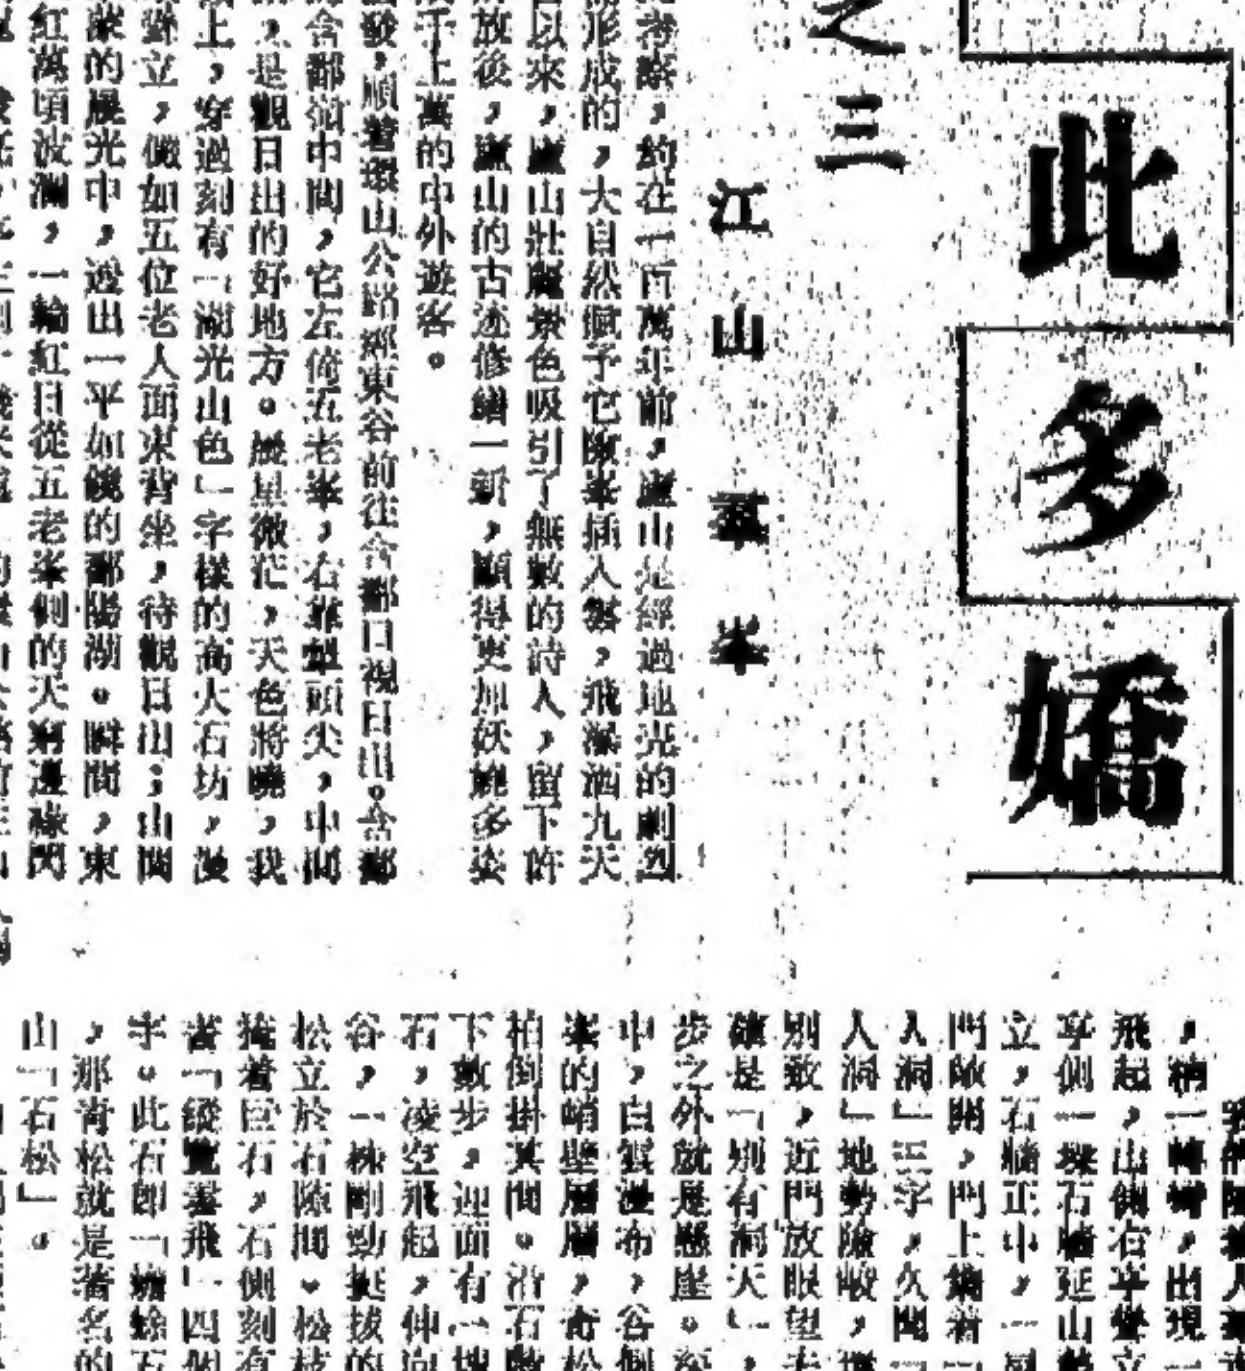 此多嬌
之三
江山 峯
考察，約在一百萬年前，廬山是經過地壳的劇烈
形成的，大自然賦予它陳峯插入雲，飛瀑洒九天
以來，廬山壯麗景色吸引了無數的詩人，留下許
放後，廬山的古迹修繕一新，顯得更加妖嬈多姿
千上萬的中外遊客。
發，順着環山公路經東谷前往含鄱口視日出。含鄱
含鄱嶺中間，它左倚五老峯，右靠犁頭尖，中間
，是觀日出的好地方。晨星微茫，天色將曉，我
上，穿過刻有「湖光山色」字樣的高大石坊，漫
對立，儼如五位老人面東背坐，待觀日出；山間
濛的晨光中，透出一平如鏡的鄱陽湖。瞬間，東
紅萬頃波瀾，一輪紅日從五老峯側的天窮邊綠閃
，稍一轉彎，出現
飛起，山側右平聳立
亭側一堞石牆延山
立，石牆正中，一
門敞開，門上鐫着
人洞」三字，久聞
人洞」地勢險峻，
別致，近門放眼望去
確是「別有洞天」，
步之外就是懸崖。深
中，白雲漫布，谷側
峯的峭壁層層，奇松
柏倒掛其間。沿石
下數步，迎面有一塊
石，凌空飛起，伸向
谷，一株剛勁挺拔的
松立於石隙間。松枝
掩着巨石，石側刻有
書「縱覽雲飛」四個
字。此石即「蟾蜍石
，那青松就是著名的
山「石松」。